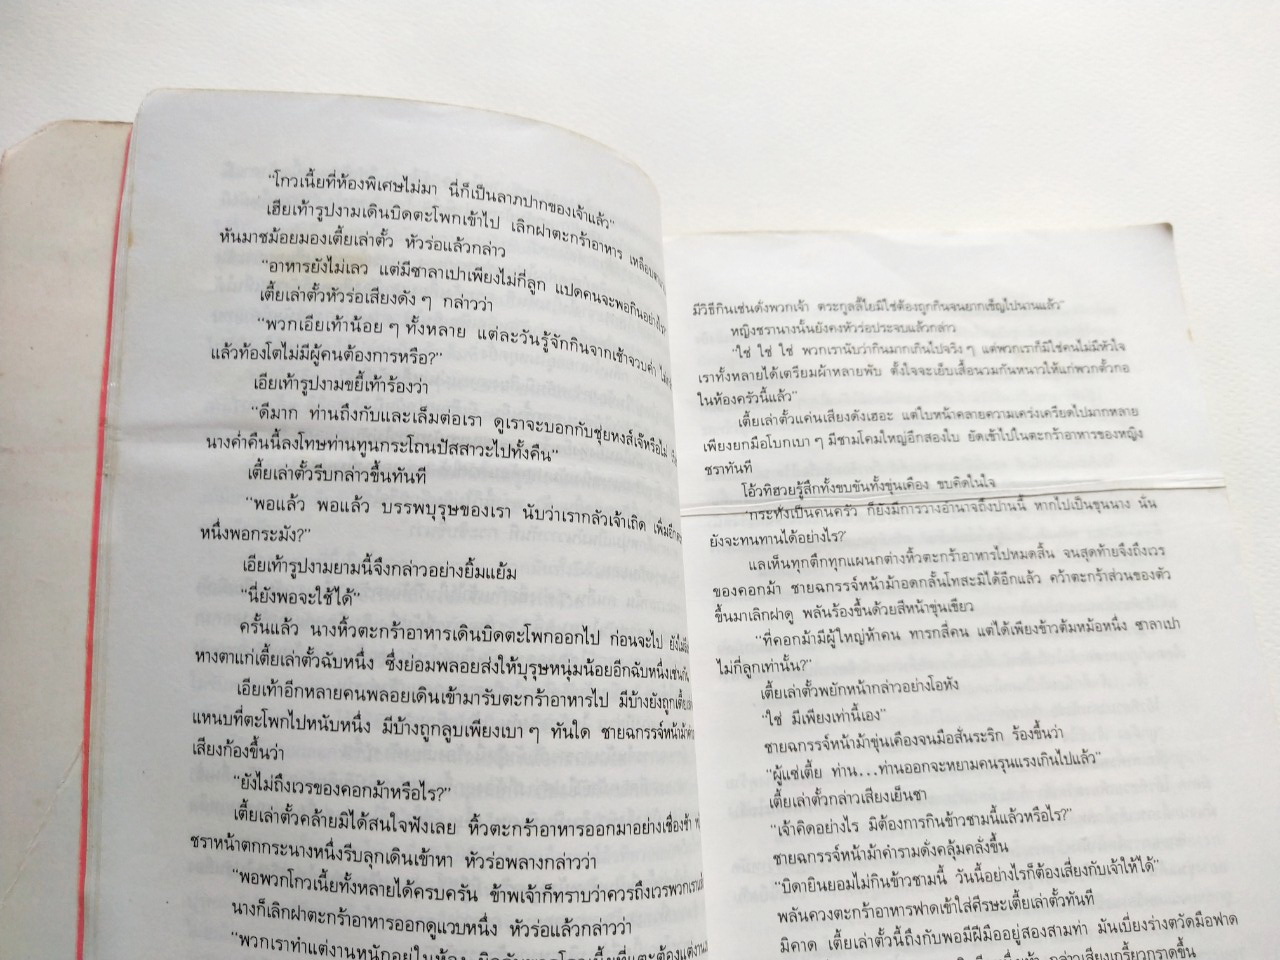 "โกวเนี้ยที่ห้องพิเศษไม่มา นี่ก็เป็นลาภปากของเจ้าแล้ว"
เฮียเท้ารูปงามเดินบิดตะโพกเข้าไป เลิกฝาตะกร้าอาหาร
หันมาชม้อยมองเตี้ยเล่าตั้ว หัวร่อแล้วกล่าว
"อาหารยังไม่เลว แต่มีซาลาเปาเพียงไม่กี่ลูก แปดคนจะพอกินอย่างไร
เตี้ยเล่าตั้วหัวร่อเสียงดังๆ กล่าวว่า
"พวกเอียเท้าน้อยๆ ทั้งหลาย แต่ละวันรู้จักกินจากเช้าจวบค่ำ
แล้วท้องโตไม่มีผู้คนต้องการหรือ?"
เอียเท้ารูปงามขยี้เท้าร้องว่า
"ดีมาก ท่านถึงกับและเล็มต่อเรา ดูเราจะบอกกับซุ่ยหงส์เจ้หรือไม่
นางค่ำคืนนี้ลงโทษท่านทูนกระโถนปัสสาวะไปทั้งคืน"
เตี้ยเล่าตั้วรีบกล่าวขึ้นทันที
"พอแล้ว พอแล้ว บรรพบุรุษของเรา นับว่าเรากลัวเจ้าเถิด เพิ่มอีก
หนึ่งพอกระมัง?"
เอียเท้ารูปงามยามนี้จึงกล่าวอย่างยิ้มแย้ม
"นี่ยังพอจะใช้ได้"
ครั้นแล้ว นางหิ้วตะกร้าอาหารเดินบิดตะโพกออกไป ก่อนจะไป
หางตาแก่เตี้ยเล่าตั้วฉับหนึ่ง ซึ่งย่อมพลอยส่งให้บุรุษหนุ่มน้อยอีกฉับหนึ่ง
เอียเท้าอีกหลายคนพลอยเดินเข้ามารับตะกร้าอาหารไป มีบ้างยังถูก
แหนบที่ตะโพกไปหนับหนึ่ง มีบ้างถูกลูบเพียงเบาๆ ทันใด ชายฉกรรจ์หน้าม้า
เสียงก้องขึ้นว่า
"ยังไม่ถึงเวรของคอกม้าหรือไร?"
เตี้ยเล่าตั้วคล้ายมิได้สนใจฟังเลย หิ้วตะกร้าอาหารออกมาอย่างเชื่องช้า
ชราหน้าตกกระนางหนึ่งรีบลุกเดินเข้าหา หัวร่อพลางกล่าวว่า
"พอพวกโกวเนี้ยทั้งหลายได้ครบครัน ข้าพเจ้าก็ทราบว่าควรถึงเวรพวกเรา
นางก็เลิกฝาตะกร้าอาหารออกดูแวบหนึ่ง หัวร่อแล้วกล่าวว่า
"พวกเราทำแต่งานหนักอยู่ในห้อง
มีวิธีกินเช่นดังพวกเจ้า ตระกูลลี้ไยมิใช่ต้องถูกกินจนยากเข็ญไปนานแล้ว"
หญิงชรานางนั้นยังคงหัวร่อประจบแล้วกล่าว
"ใช่ ใช่ ใช่ พวกเรานับว่ากินมากเกินไปจริงๆ แต่พวกเราก็มิใช่คนไม่มีหัวใจ
เราทั้งหลายได้เตรียมผ้าหลายพับ ตั้งใจจะเย็บเสื้อนวมกันหนาวให้แก่พวกตั้วกอ
ในห้องครัวนี้แล้ว"
เตี้ยเล่าตั้วแค่นเสียงดังเฮอะ แต่ใบหน้าคลายความเคร่งเครียดไปมากหลาย
เพียงยกมือโบกเบาๆ มีชามโคมใหญ่อีกสองใบ ยัดเข้าไปในตะกร้าอาหารของหญิง
ชราทันที
โอ้วทิฮวยรู้สึกทั้งขบขันทั้งขุ่นเคือง ขบคิดในใจ
"กระทั่งเป็นคนครัว ก็ยังมีการวางอำนาจถึงปานนี้ หากไปเป็นขุนนาง นั่น
ยังจะทนทานได้อย่างไร?"
แลเห็นทุกตึกทุกแผนกต่างหิ้วตะกร้าอาหารไปหมดสิ้น จนสุดท้ายจึงถึงเวร
ของคอกม้า ชายฉกรรจ์หน้าม้าอดกลั้นโทสะมิได้อีกแล้ว คว้าตะกร้าส่วนของตัว
ขึ้นมาเลิกฝาดู พลันร้องขึ้นด้วยสีหน้าขุ่นเขียว
"ที่คอกม้ามีผู้ใหญ่ห้าคน ทารกสี่คน แต่ได้เพียงข้าวต้มหม้อหนึ่ง ซาลาเปา
ไม่กี่ลูกเท่านั้น?"
เตี้ยเล่าตั้วพยักหน้ากล่าวอย่างโอหัง
"ใช่ มีเพียงเท่านี้เอง"
ชายฉกรรจ์หน้าม้าขุ่นเคืองจนมือสั่นระริก ร้องขึ้นว่า
"ผู้แซ่เตี้ย ท่าน...ท่านออกจะหยามคนรุนแรงเกินไปแล้ว"
เตี้ยเล่าตั้วกล่าวเสียงเย็นชา
"เจ้าคิดอย่างไร มิต้องการกินข้าวชามนี้แล้วหรือไร?"
ชายฉกรรจ์หน้าม้าคำรามดังคลุ้มคลั่งขึ้น
"บิดายินยอมไม่กินข้าวชามนี้ วันนี้อย่างไรก็ต้องเสี่ยงกับเจ้าให้ได้"
พลันควงตะกร้าอาหารฟาดเข้าใส่ศีรษะเตี้ยเล่าตั้วทันที
มิคาด เตี้ยเล่าตั้วนี้ถึงกับพอมีฝีมืออยู่สองสามท่า มันเบี่ยงร่างตวัดมือฟาด
กล่าวเสียงเกรี้ยวกราดขึ้น